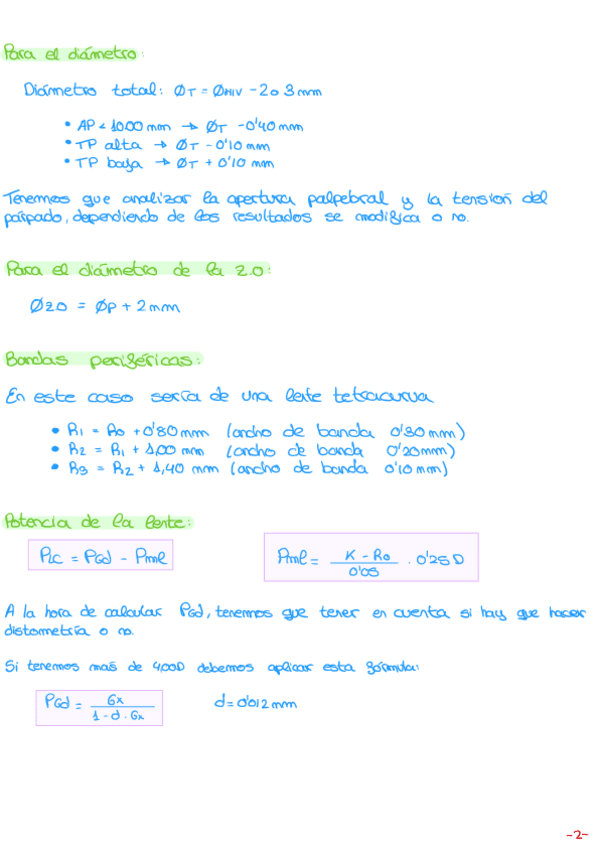 Para el diámetro:
Diámetro total: ØT = ØHIV - 2 o 3 mm
• AP < 10.00 mm → ØT - 0'40 mm
• TP alta → ØT - 0'10 mm
• TP baja → ØT + 0'10 mm
Tenemos que analizar la apertura palpebral y la tensión del
párpado, dependiendo de los resultados se modifica o no.
Para el diámetro de la z.o:
Øzo = Øp + 2 mm
Bandas periféricas:
En este caso sería de una lente tetracurva
• R1 = R0 + 0'80 mm (ancho de banda 0'30 mm)
• R2 = R1 + 1,00 mm (ancho de banda 0'20 mm)
• R3 = R2 + 1,40 mm (ancho de banda 0'10 mm)
Potencia de la lente:
PLC = PGd - Pml
Pml = K - R0 / 0'05 · 0'25 D
A la hora de calcular PGd, tenemos que tener en cuenta si hay que hacer
distometría o no.
Si tenemos más de 4,00D debemos aplicar esta fórmula:
PGd = Gx / 1 - d · Gx d = 0'012 mm
-2-